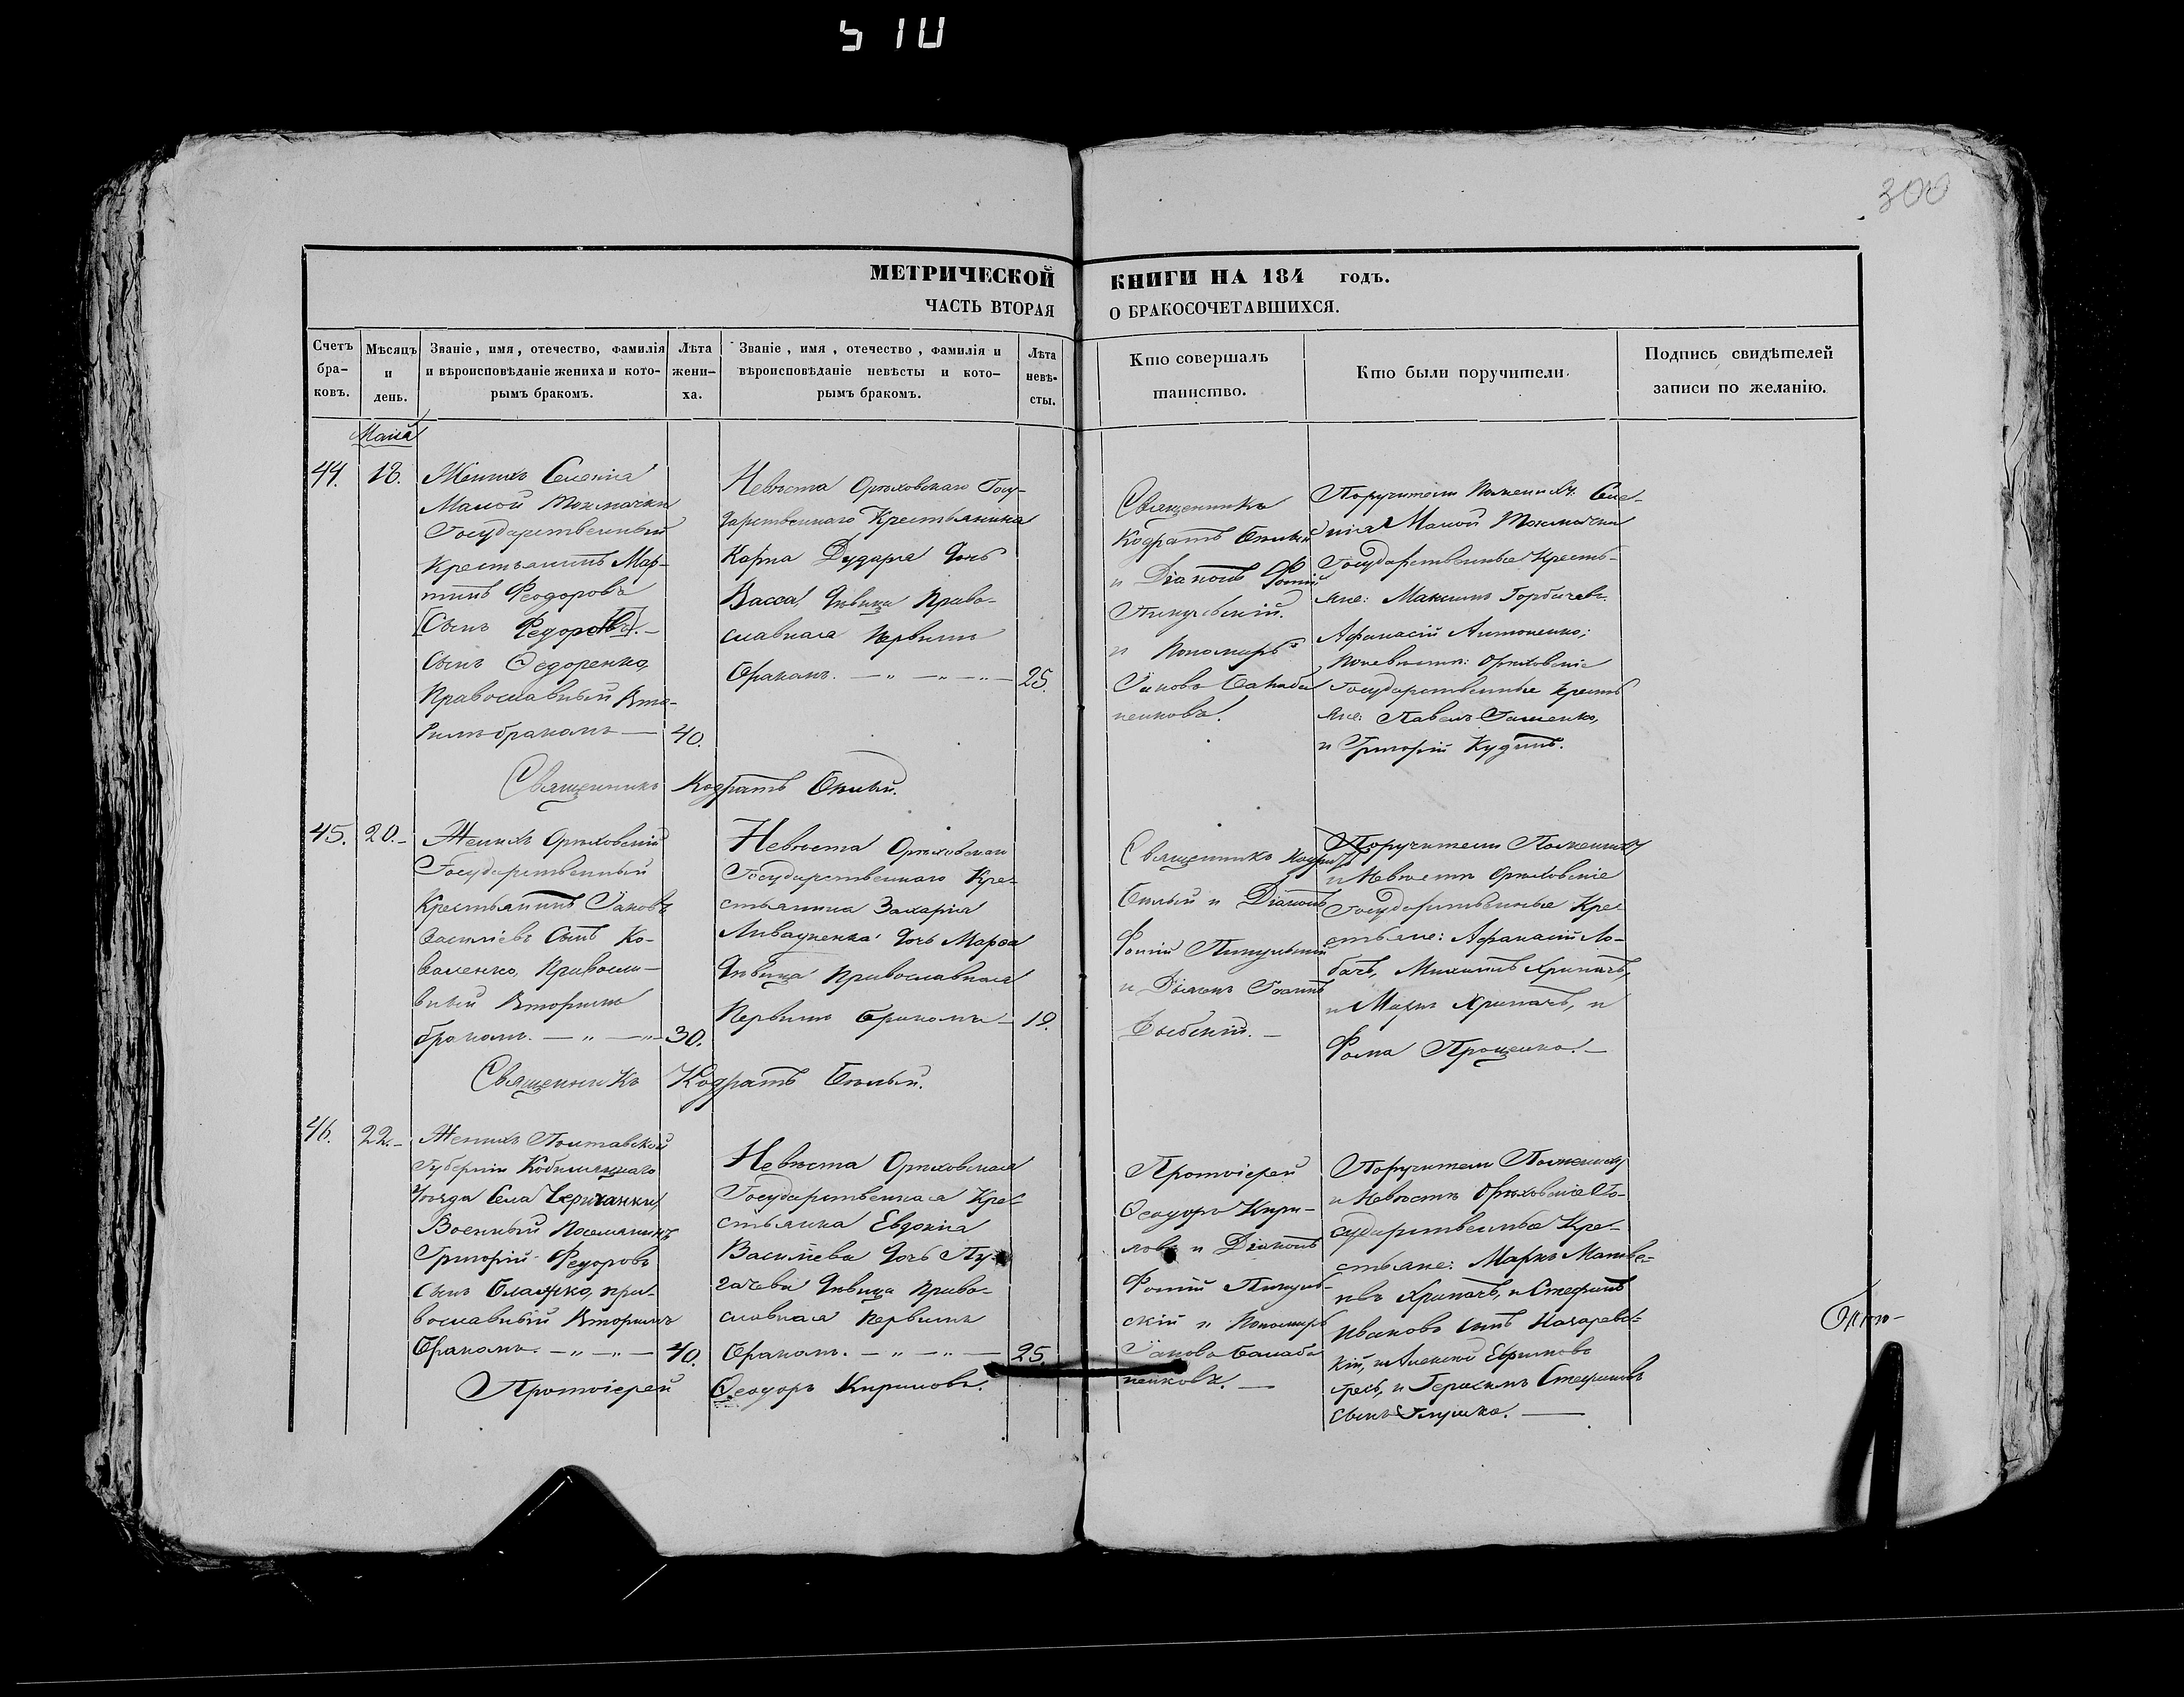 510
300
МЕТРИЧЕСКОЙ КНИГИ НА 184 годъ.
ЧАСТЬ ВТОРАЯ О БРАКОСОЧЕТАВШИХСЯ.
Счетъ бра-ковъ.
Мѣсяцъ и день.
Званіе, имя, отечество, фамилія и вѣроисповѣданіе жениха и кото-рымъ бракомъ.
Лѣта жени-ха.
Званіе, имя, отечество, фамилія и вѣроисповѣданіе невѣсты и кото-рымъ бракомъ.
Лѣта невѣ-сты.
Кто совершалъ таинство.
Кто были поручители.
Подпись свидѣтелей записи по желанію.
Маія
44.
18.
Женихъ Селенія
Малой Токмачки
Государственный
Крестьянинъ Мар-
тинъ Феодоровъ
[Сынъ Федоровъ].-
Сынъ Ѳедоренко,
Православный Вто-
рымъ бракомъ —
40.
Невѣста Орѣховскаго Госу-
дарственнаго Крестьянина
Карпа Дударя дочь
Васса, дѣвица право-
славная первымъ
бракомъ. — „ — „ —
25.
Священникъ
Кодратъ Бѣлый
и Діаконъ Фотій
и Пономарь
Іаковъ
Поручители По женихѣ: Селе-
нія Малой Токмачки
Государственные Кресть-
яне: Максимъ Горбачевъ
Афанасій Антоненко;
По невѣстѣ: Орѣховскіе
Государственные Кресть
яне: Павелъ
и Григорій
Священникъ Кодратъ Бѣлый.
45.
20.-
Женихъ Орѣховскій
Государственный
Крестьянинъ Іаковъ
Василіевъ Сынъ Ко-
валенко, Правосла-
вный Вторымъ
бракомъ. — „ — „ —
30.
Невѣста Орѣховскаго
Государственнаго Кре-
стьянина Захарія
дочь Марѳа
дѣвица православная
первымъ бракомъ —
19.
Священникъ Кодратъ
Бѣлый и Діаконъ
Фотій
и Іоаннъ
Поручители По женихѣ
и Невѣстѣ Орѣховскіе
Государственные Кре-
стьяне: Афанасій Ло-
бачъ, Михаилъ Хрипачъ,
и Маркъ Хрипачъ, и
Фома Проценко. —
Священникъ Кодратъ Бѣлый.
46.
22.-
Женихъ Полтавской
Губерніи Кобеляцкаго
Уѣзда Села
Военный Поселянинъ
Григорій Федоровъ
Сынъ пра-
вославный Вторымъ
Бракомъ. — „ — „ —
40.
Невѣста Орѣховская
Государственная Кре-
стьянка Евдокія
Василіева дочь Пу-
гачева дѣвица право-
славная первымъ
бракомъ. — „ — „ —
25.
Протоіерей
Ѳеодоръ Кири-
ловъ и Діаконъ
Фотій
и Пономарь
Іаковъ
Поручители По женихѣ
и Невѣстѣ Орѣховскіе Го-
сударственные Кре-
стьяне: Маркъ Матве-
евъ Хрипачъ, и Стефанъ
Ивановъ сынъ Назарев-
скій, и Алексѣй Ефимовъ
и Герасимъ Стефановъ
сынъ Глушко. —
Протоіерей Ѳеодоръ Кириловъ.